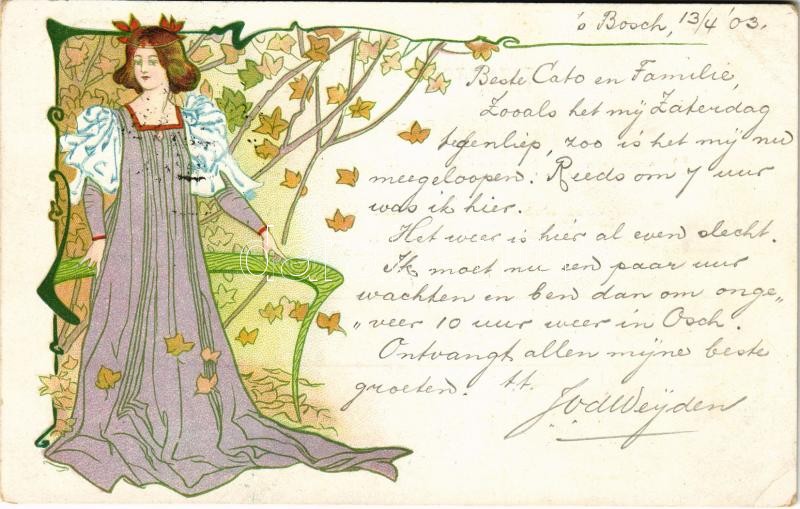 's Bosch, 13/4 '03.
Beste Cato en Familie,
Zooals het mij Zaterdag
tegenliep, zoo is het mij nu
meegeloopen. Reeds om 7 uur
was ik hier.
Het weer is hier al even slecht.
Ik moet nu een paar uur
wachten en ben dan om onge„
„veer 10 uur weer in Osch.
Ontvangt allen mijne beste
groeten. t.t.
JvdWeijden